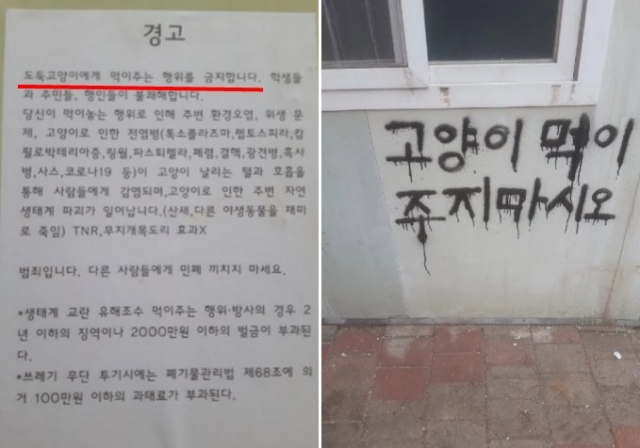 경고
도둑고양이에게 먹이주는 행위를 금지합니다. 학생들
과 주민들, 행인들이 불쾌해합니다.
당신이 먹이놓는 행위로 인해 주변 환경오염, 위생 문
제, 고양이로 인한 전염병(톡소플라즈마,렙토스피라,캄
필로박테리아증,링웜,파스퇴렐라,폐렴,결핵,광견병,흑사
병,사스,코로나19 등)이 고양이 날리는 털과 호흡을
통해 사람들에게 감염되며,고양이로 인한 주변 자연
생태계 파괴가 일어납니다.(산새,다른 야생동물을 재미
로 죽임) TNR,무지개목도리 효과X
범죄입니다. 다른 사람들에게 민폐 끼치지 마세요.
*생태계 교란 유해조수 먹이주는 행위·방사의 경우 2
년 이하의 징역이나 2000만원 이하의 벌금이 부과된
다.
*쓰레기 무단 투기시에는 폐기물관리법 제68조에 의
거 100만원 이하의 과태료가 부과된다.
고양이 먹이
주지마시오